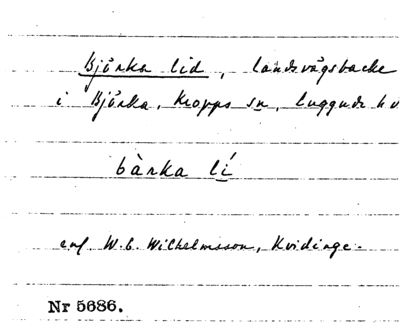 Björka lid, landsvägsbacke
i Björka, Kropps sn, Luggude hd
bàrka lí
enl. W. E. Wilhelmsson, Kvidinge.
Nr 5686.